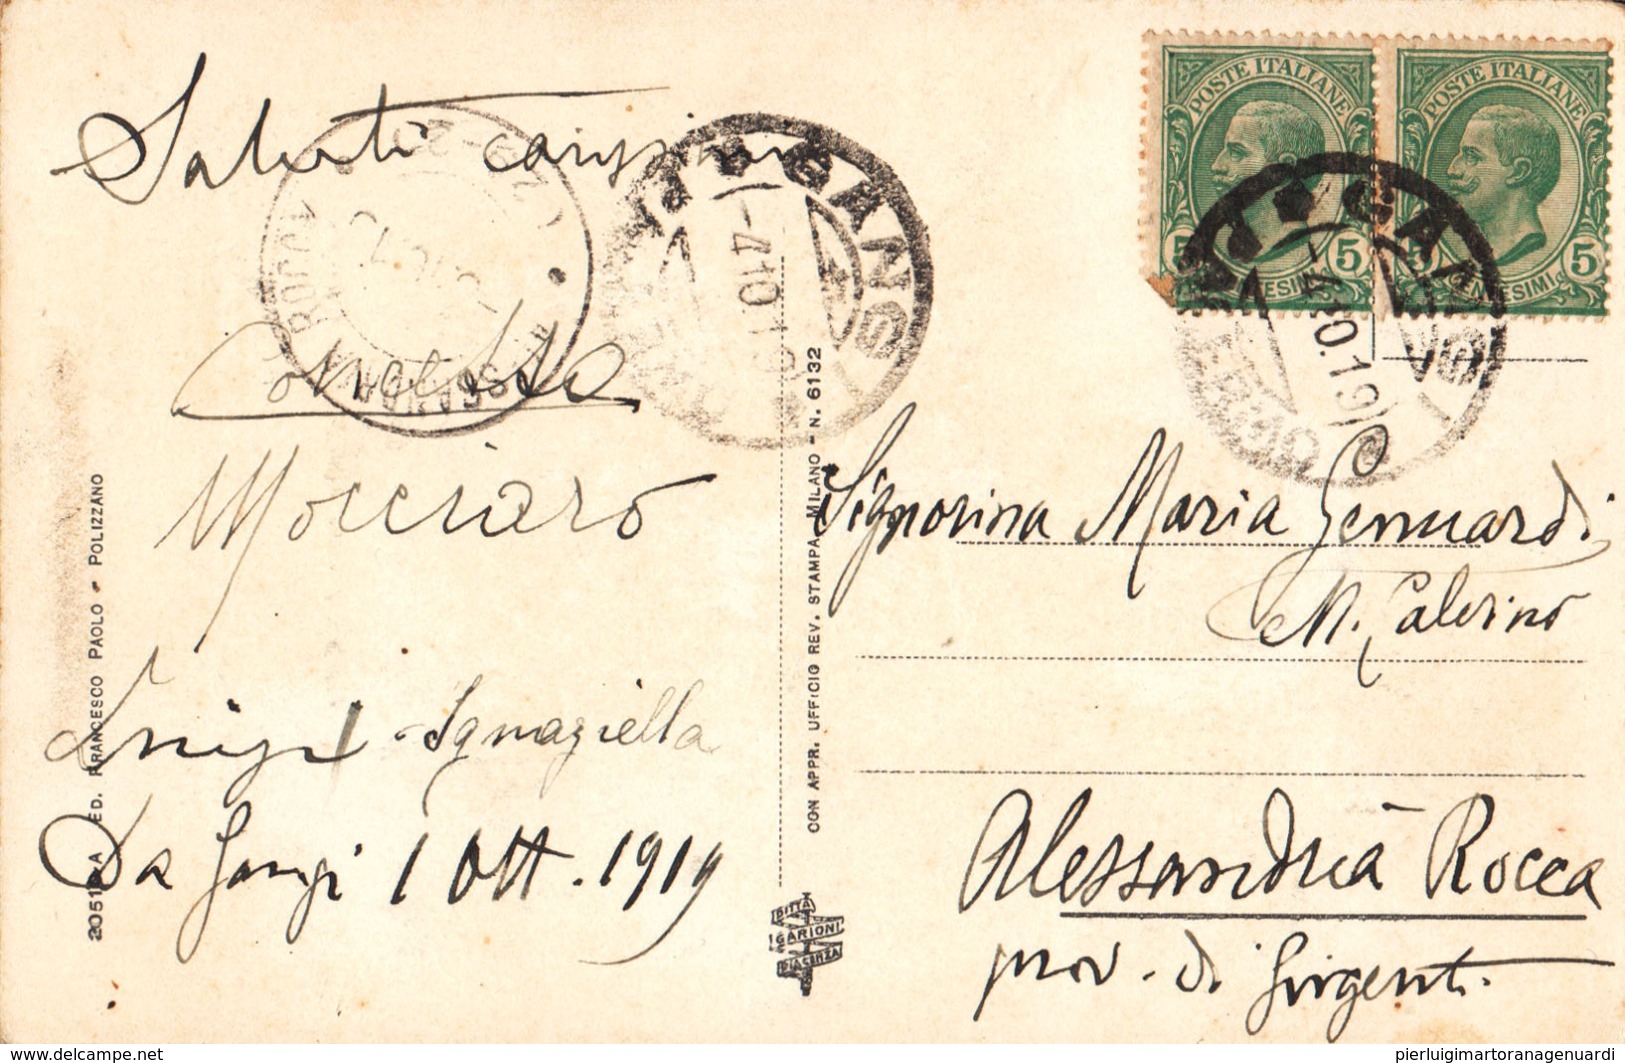 Saluti carissimi
Concetta
Mocciaro
Luigi - Ignaziella
Da Gangi 1 Ott. 1919
20519-A ED. FRANCESCO PAOLO - POLIZZANO
CON APPR. UFFICIO REV. STAMPA MILANO - N. 6132
DITTA
GARIONI
PIACENZA
POSTE ITALIANE
5 5
CENTESIMI
POSTE ITALIANE
5 5
CENTESIMI
GANGI
-4.10.19
GANGI
PALERMO
-4.10.19
ROCCA
Signorina Maria Gennardi
M. Calvino
Alessandria Rocca
prov. di Girgenti
pierluigimartoranagenuardi